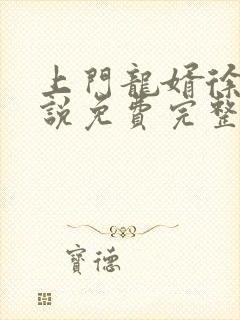 上門龍婿徐
說免費完整
寶德